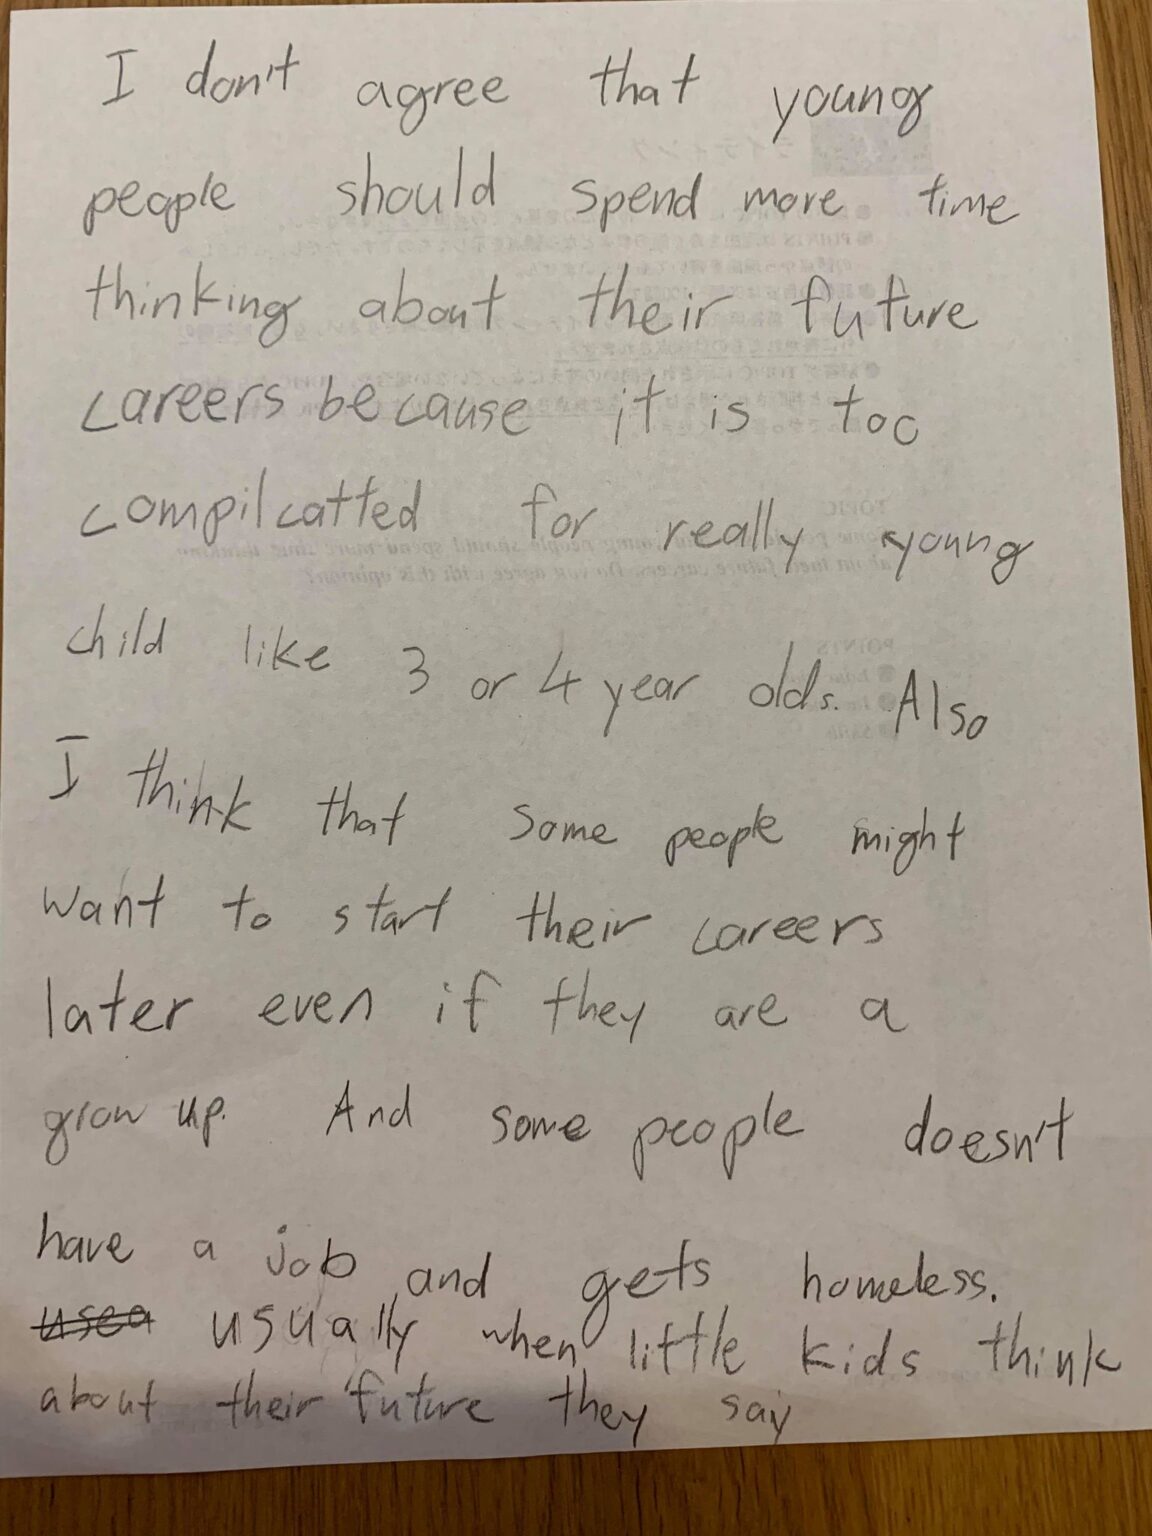 I don't agree that young
people should spend more time
thinking about their future
careers because it is too
compilcatted for really young
child like 3 or 4 year olds. Also
I think that some people might
want to start their careers
later even if they are a
grow up. And some people doesn't
have a job and gets homeless.
usea usually when little kids think
about their future they say